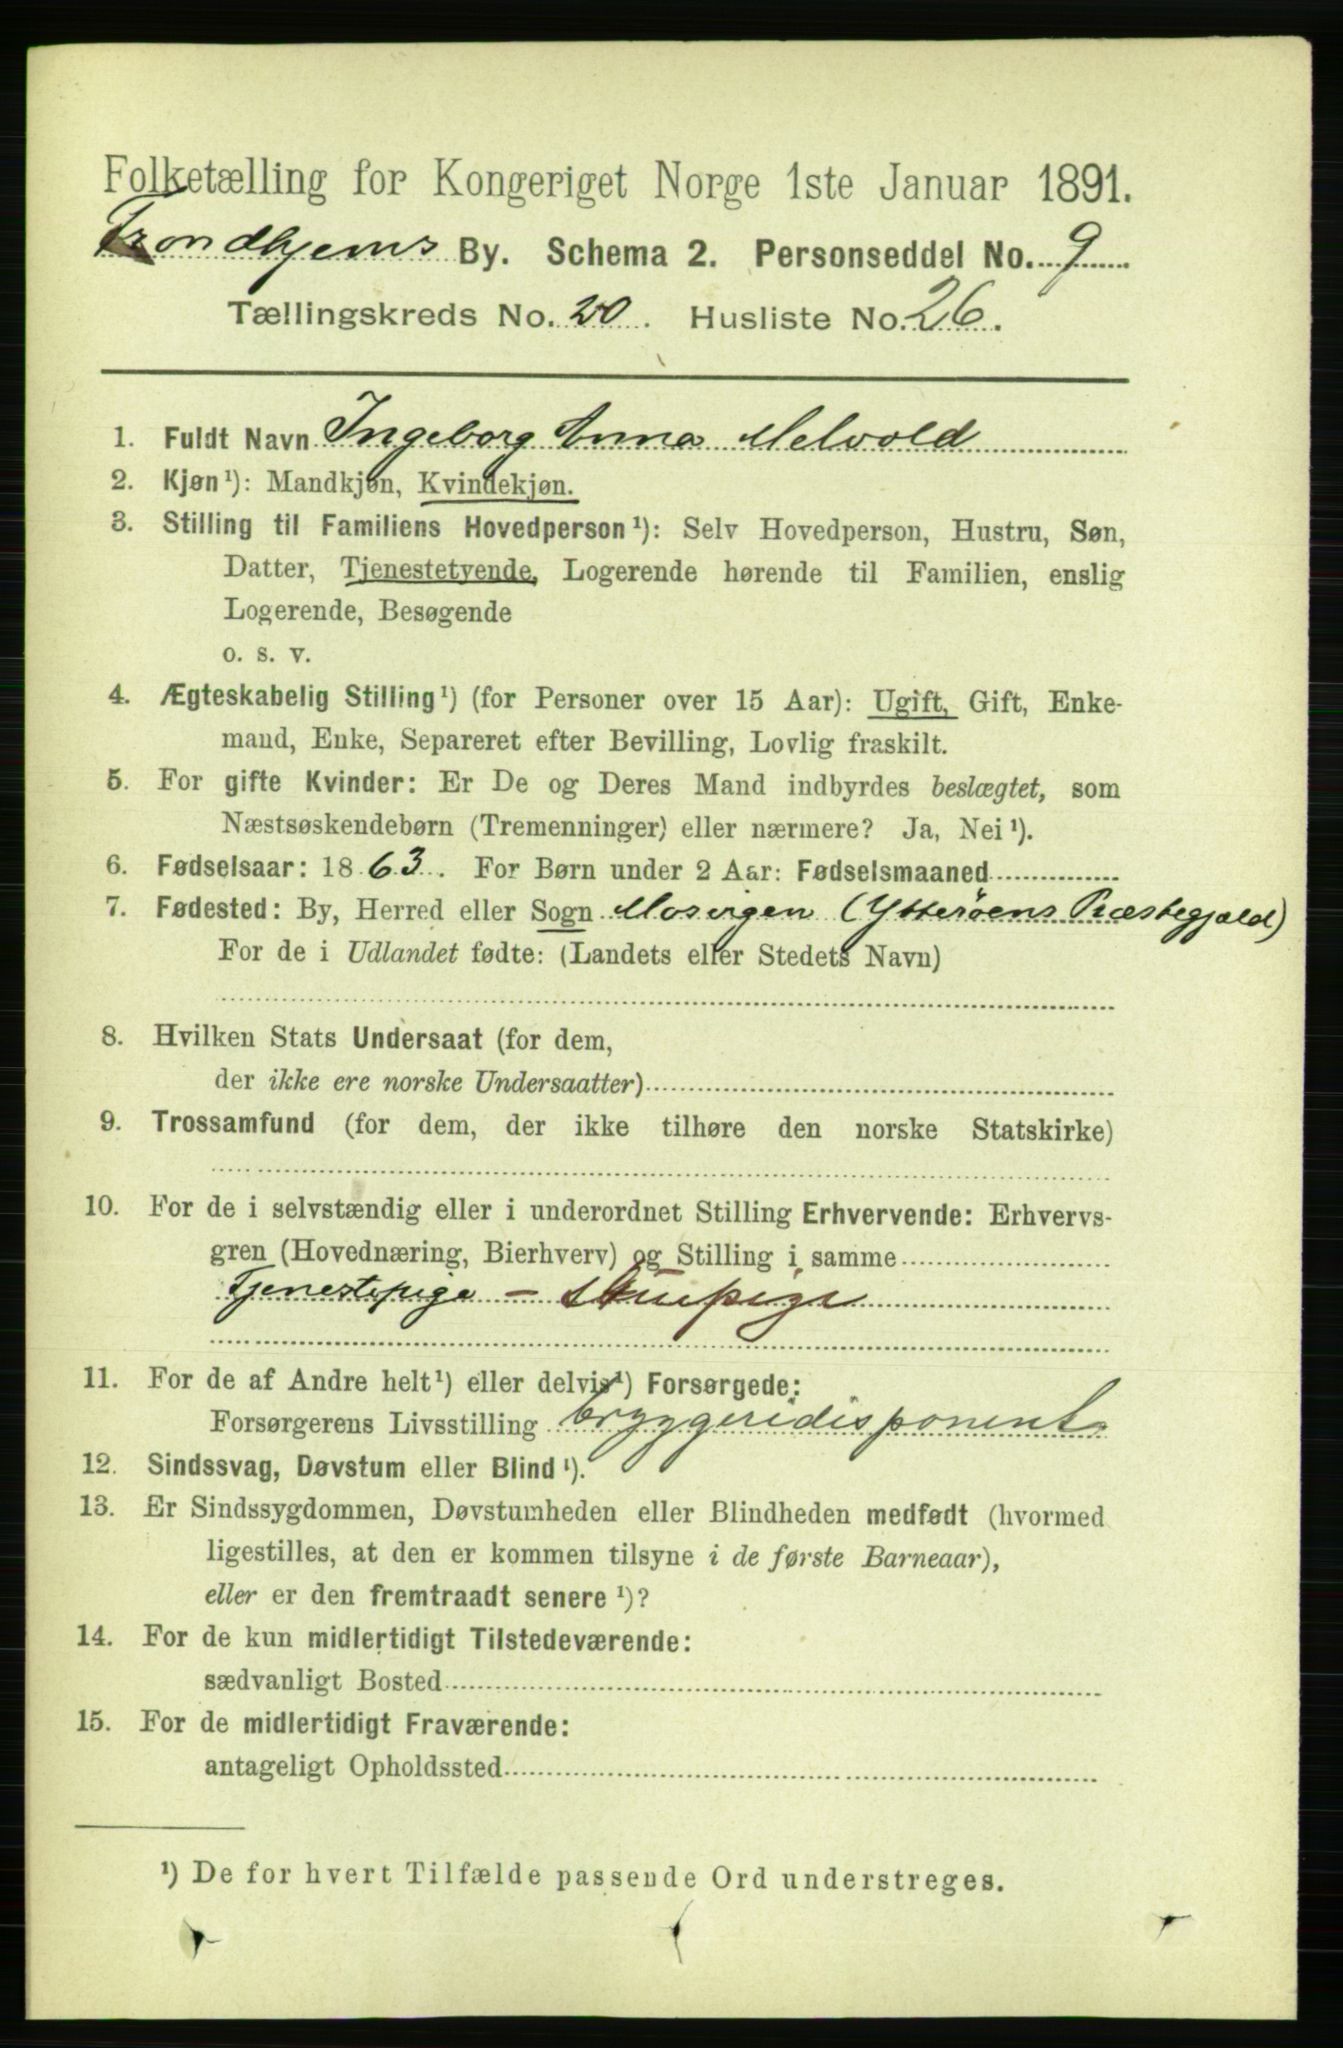 Folketælling for Kongeriget Norge 1ste Januar 1891.
Trondhjems By. Schema 2. Personseddel No. 9
Tællingskreds No. 20. Husliste No. 26.
1. Fuldt Navn Ingeborg Anna Melvold
2. Kjøn¹): Mandkjøn, Kvindekjøn.
3. Stilling til Familiens Hovedperson¹): Selv Hovedperson, Hustru, Søn,
Datter, Tjenestetyende, Logerende hørende til Familien, enslig
Logerende, Besøgende
o. s. v.
4. Ægteskabelig Stilling¹) (for Personer over 15 Aar): Ugift, Gift, Enke-
mand, Enke, Separeret efter Bevilling, Lovlig fraskilt.
5. For gifte Kvinder: Er De og Deres Mand indbyrdes beslægtet, som
Næstsøskendebørn (Tremenninger) eller nærmere? Ja, Nei¹).
6. Fødselsaar: 1863. For Børn under 2 Aar: Fødselsmaaned
7. Fødested: By, Herred eller Sogn Mosvigen (Ytterøens Præstegjæld)
For de i Udlandet fødte: (Landets eller Stedets Navn)
8. Hvilken Stats Undersaat (for dem,
der ikke ere norske Undersaatter)
9. Trossamfund (for dem, der ikke tilhøre den norske Statskirke)
10. For de i selvstændig eller i underordnet Stilling Erhvervende: Erhvervs-
gren (Hovednæring, Bierhverv) og Stilling i samme
Tjenestepige - Stuepige
11. For de af Andre helt¹) eller delvis¹) Forsørgede:
Forsørgerens Livsstilling bryggeridisponent
12. Sindssvag, Døvstum eller Blind¹).
13. Er Sindssygdommen, Døvstumheden eller Blindheden medfødt (hvormed
ligestilles, at den er kommen tilsyne i de første Barneaar),
eller er den fremtraadt senere¹)?
14. For de kun midlertidigt Tilstedeværende:
sædvanligt Bosted
15. For de midlertidigt Fraværende:
antageligt Opholdssted
¹) De for hvert Tilfælde passende Ord understreges.